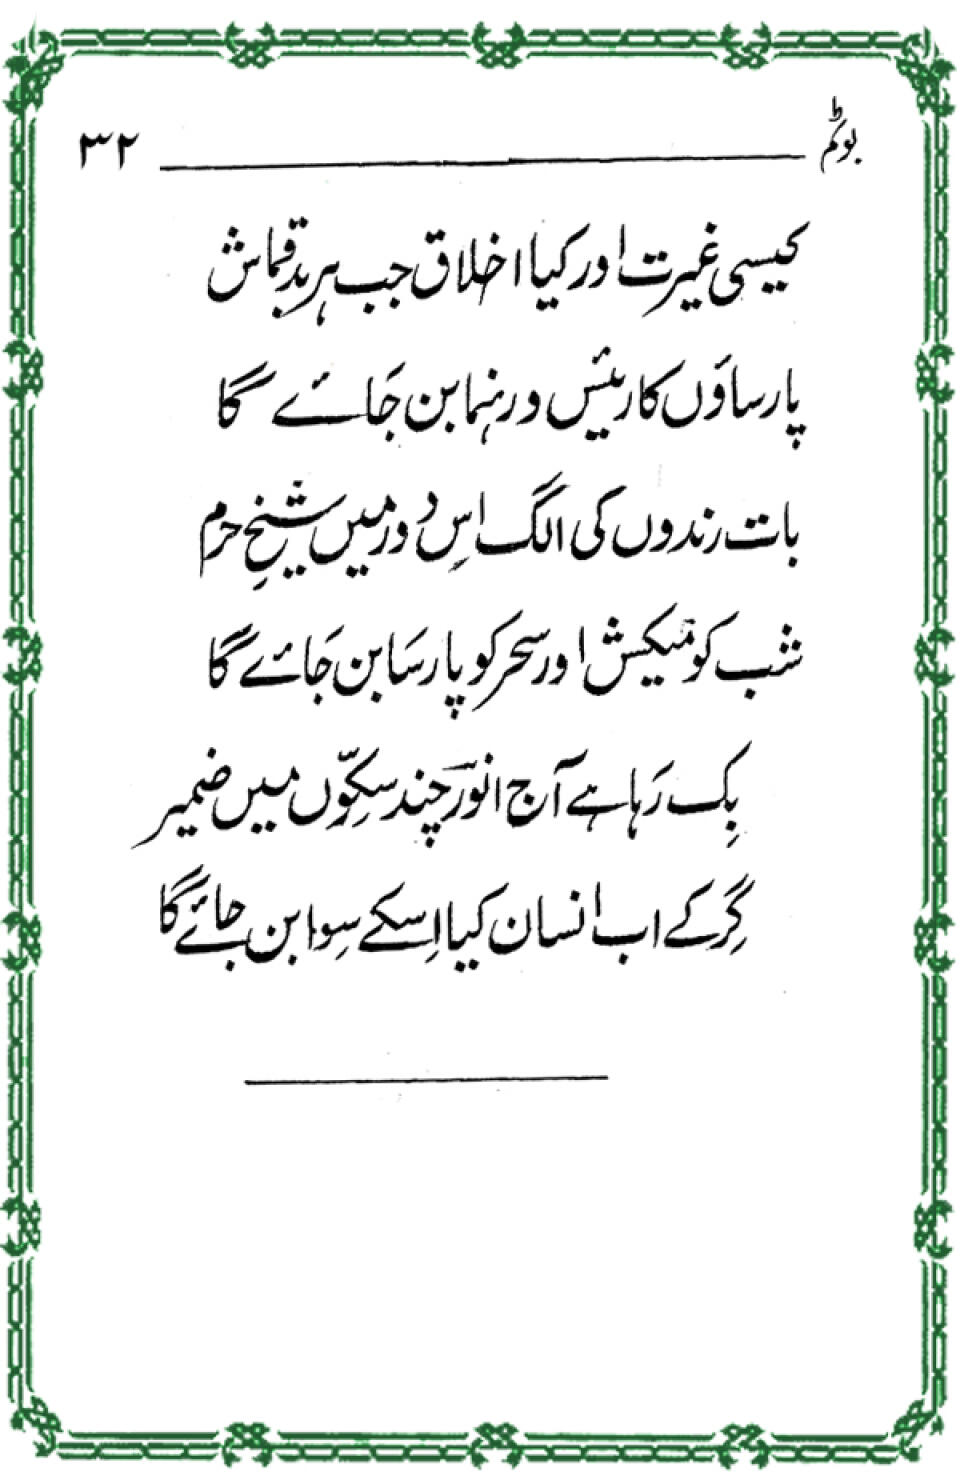 بوٹم ۳۲
کیسی غیرت اور کیا اخلاق جب ہر بدقماش
پارساؤں کا رئیس و رہنما بن جَائے گا
بات رندوں کی الگ اِس دور میں شیخِ حرم
شب کو میکش اور سحر کو پارسَا بن جَائے گا
بِک رَہا ہے آج انورؔ چند سِکّوں میں ضمیر
گِر کے اب انسان کیا اِسکے سِوا بن جائے گا